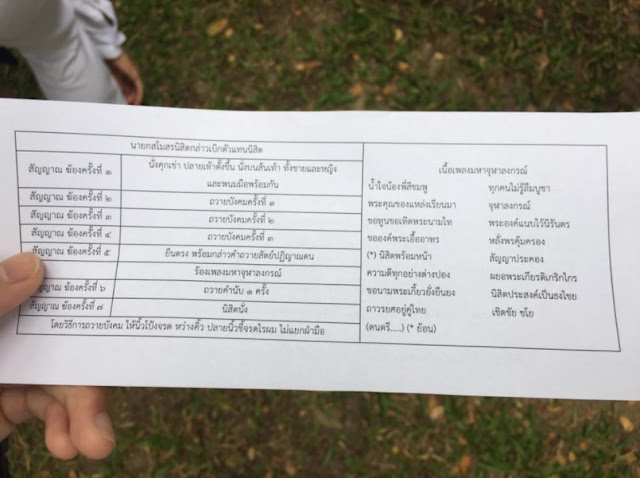 นายกสโมสรนิสิตกล่าวเบิกตัวแทนนิสิต
สัญญาณ ฆ้องครั้งที่ ๑ นั่งคุกเข่า ปลายเท้าตั้งขึ้น นั่งบนส้นเท้า ทั้งชายและหญิง
และพนมมือพร้อมกัน
สัญญาณ ฆ้องครั้งที่ ๒ ถวายบังคมครั้งที่ ๑
สัญญาณ ฆ้องครั้งที่ ๓ ถวายบังคมครั้งที่ ๒
สัญญาณ ฆ้องครั้งที่ ๔ ถวายบังคมครั้งที่ ๓
สัญญาณ ฆ้องครั้งที่ ๕ ยืนตรง พร้อมกล่าวคำถวายสัตย์ปฏิญาณตน
ร้องเพลงมหาจุฬาลงกรณ์
สัญญาณ ฆ้องครั้งที่ ๖ ถวายคำนับ ๑ ครั้ง
สัญญาณ ฆ้องครั้งที่ ๗ นิสิตนั่ง
โดยวิธีการถวายบังคม ให้นิ้วโป้งจรด หว่างคิ้ว ปลายนิ้วชี้จรดไรผม ไม่แยกฝ่ามือ
เนื้อเพลงมหาจุฬาลงกรณ์
น้ำใจน้องพี่สีชมพู ทุกคนไม่รู้ลืมบูชา
พระคุณของแหล่งเรียนมา จุฬาลงกรณ์
ขอทูนขอเทิดพระนามไท พระองค์แนบไว้นิรันดร
ขอองค์พระเอื้ออาทร หลั่งพรคุ้มครอง
(*) นิสิตพร้อมหน้า สัญญาประคอง
ความดีทุกอย่างต่างปอง ผยอพระเกียรติเกริกไกร
ขอนามพระเกี้ยวยั่งยืนยง นิสิตประสงค์เป็นธงไชย
ถาวรยศอยู่คู่ไทย เชิดชัย ชโย
(ดนตรี.....) (* ย้อน)